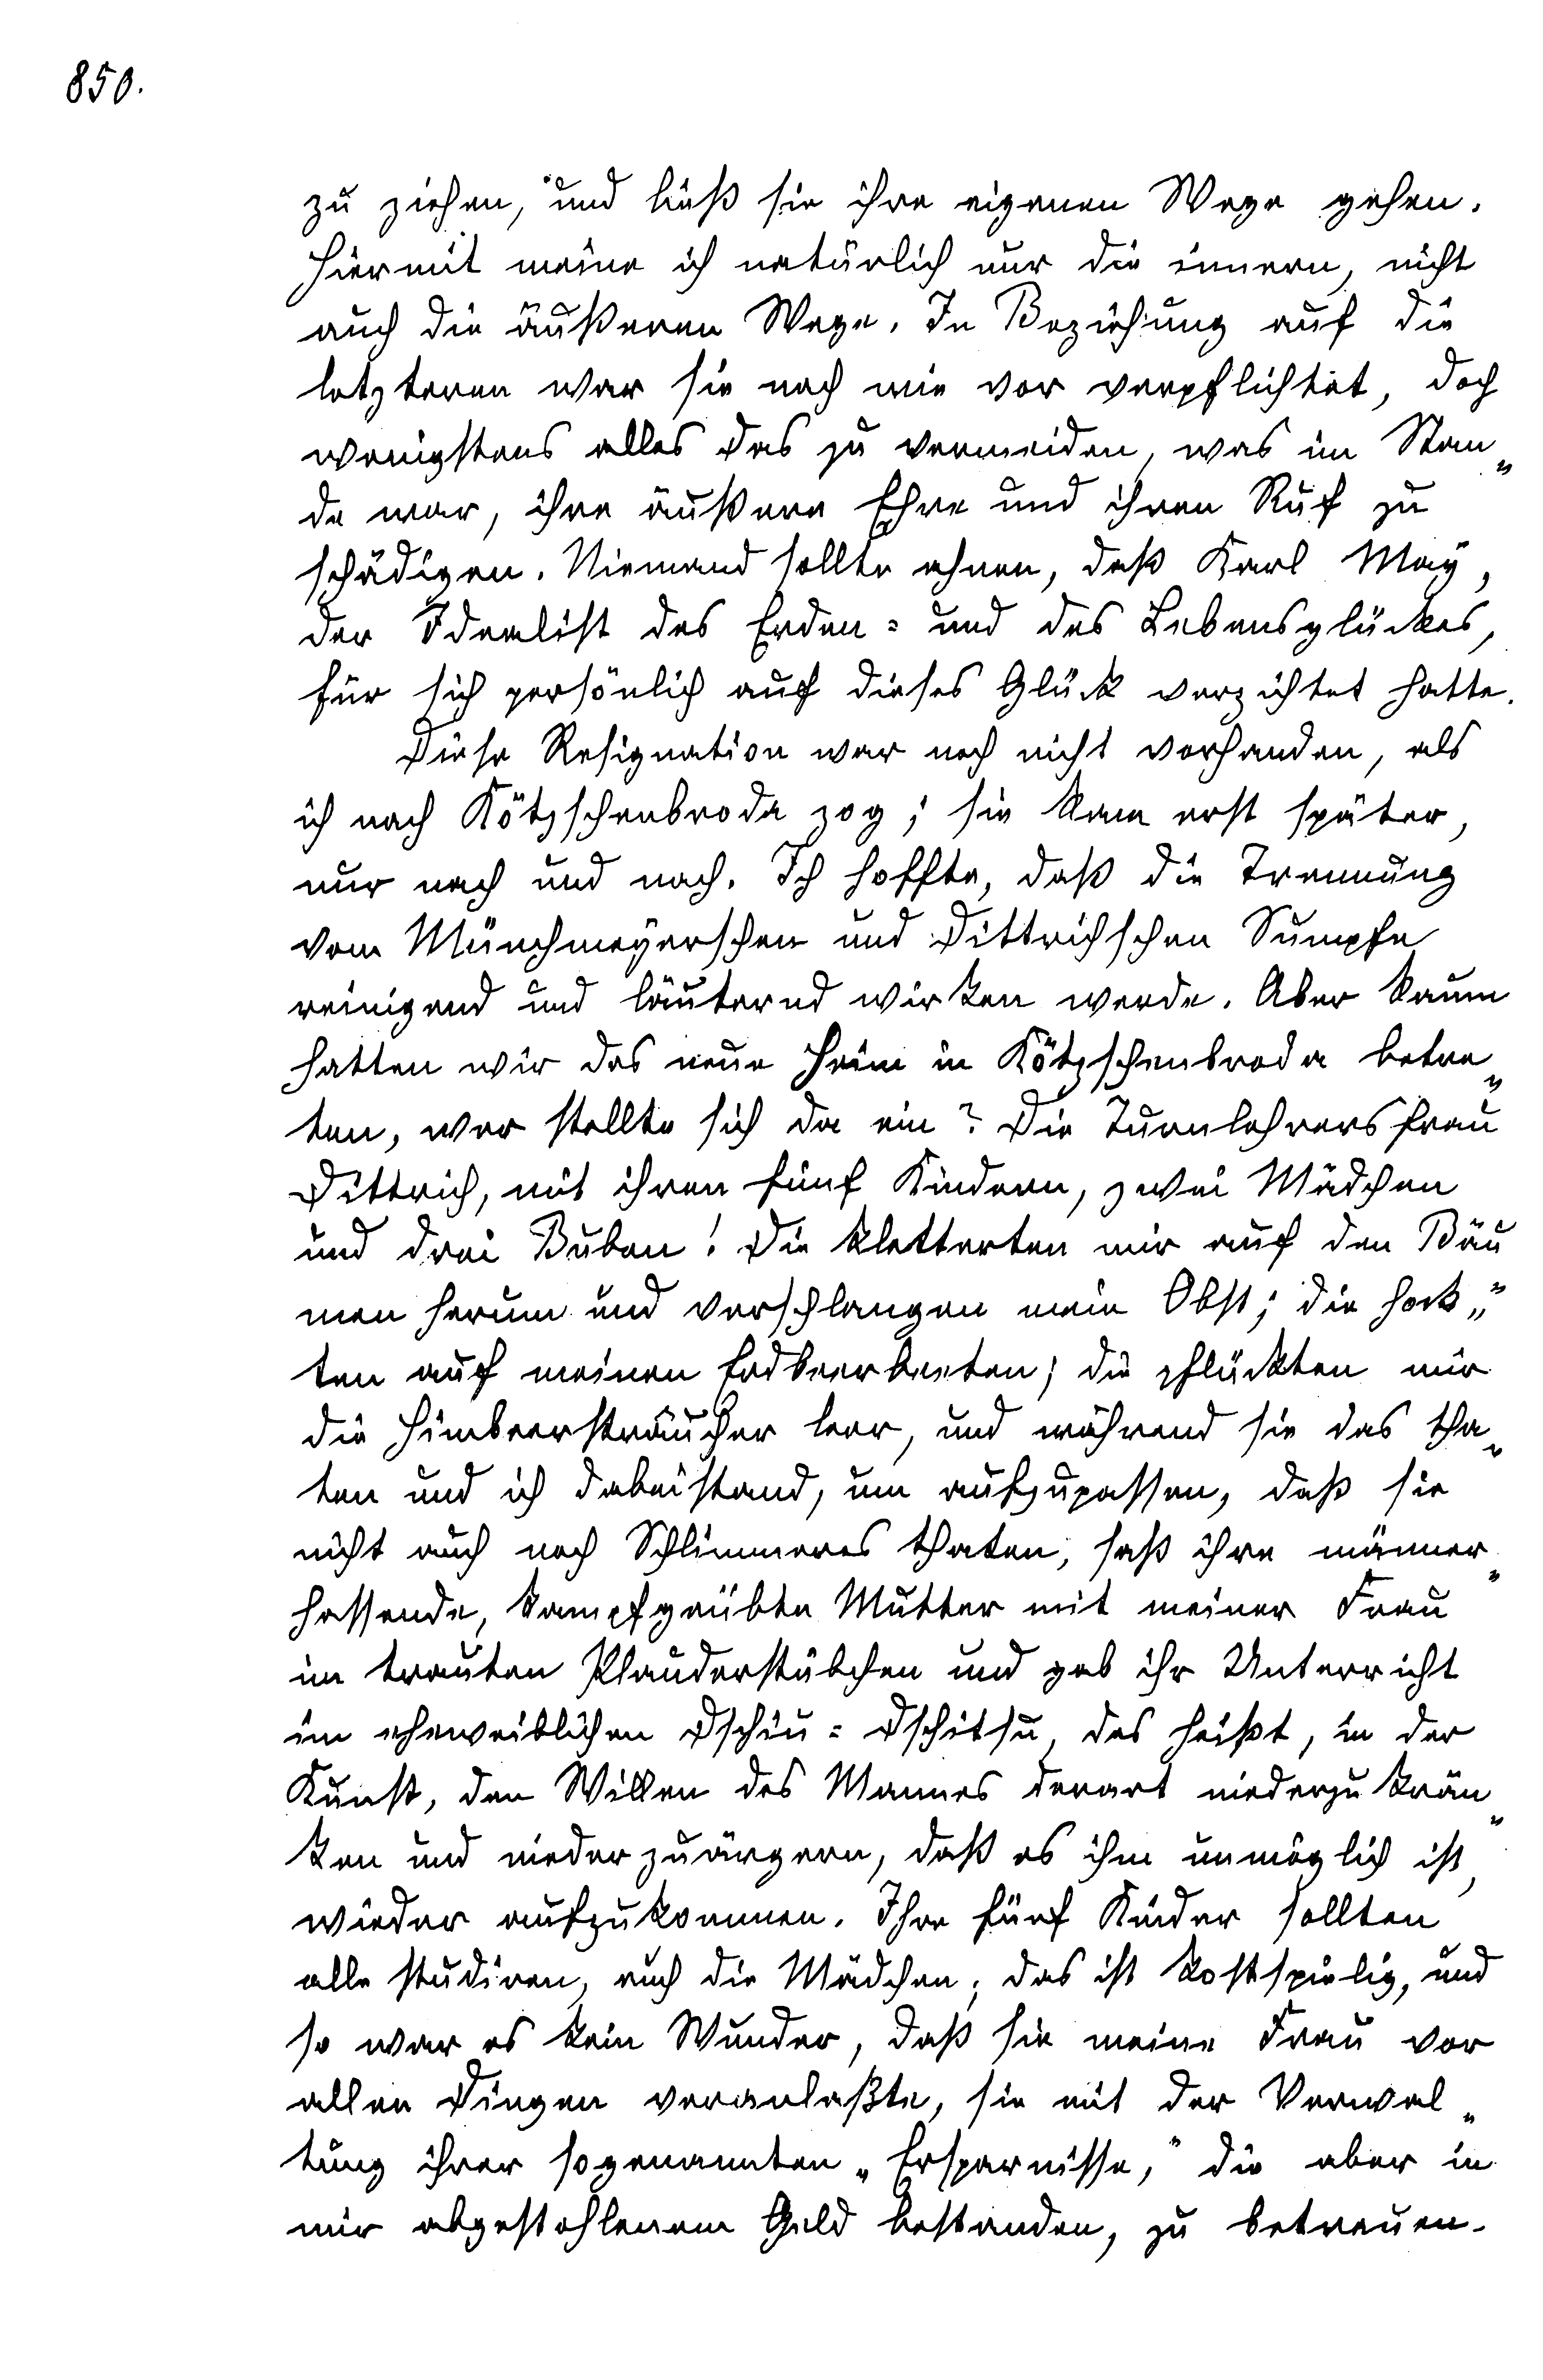 850.
zu ziehen, und ließ sie ihre eigenen Wege gehen.
Hiermit meine ich natürlich nur die innern, nicht
auch die äußeren Wege. In Beziehung auf die
letzteren war sie nach wie vor verpflichtet, doch
wenigstens alles das zu vermeiden, was im Stan„
de war, ihre äußere Ehre und ihren Ruf zu
schädigen. Niemand sollte ahnen, daß Karl May,
der Idealist des Erden= und des Lebensglückes,
für sich persönlich auf dieses Glück verzichtet hatte.
Diese Resignation war noch nicht vorhanden, als
ich nach Kötzschenbroda zog; sie kam erst später,
nur nach und nach. Ich hoffte, daß die Trennung
vom Münchmeyerschen und Dittrichschen Sumpfe
reinigend und läuternd wirken werde. Aber kaum
hatten wir das neue Heim in Kötzschenbroda betre„
ten, wer stellte sich da ein? Die Turnlehrersfrau
Dittrich, mit ihren fünf Kindern, zwei Mädchen
und drei Buben! Die kletterten mir auf den Bäu„
men herum und verschlangen mein Obst; die hock„
ten auf meinen Erdbeerbeeten; die pflückten mir
die Himbeersträucher leer, und während sie das tha„
ten und ich dabeistand, um aufzupassen, daß sie
nicht auch noch Schlimmeres thaten, saß ihre männer„
hassende, kampfgeübte Mutter mit meiner Frau
im trauten Plauderstübchen und gab ihr Unterricht
im eheweiblichen Dschiu=Dschitsu, das heißt, in der
Kunst, den Willen des Mannes derart niederzukrän„
ken und niederzuärgern, daß es ihm unmöglich ist,
wieder aufzukommen. Ihre fünf Kinder sollten
alle studiren, auch die Mädchen; das ist kostspielig, und
so war es kein Wunder, daß sie meine Frau vor
allen Dingen veranlaßte, sie mit der Verwal„
tung ihrer sogenannten „Ersparnisse,“ die aber in
mir abgestohlenem Geld bestanden, zu betreuen.